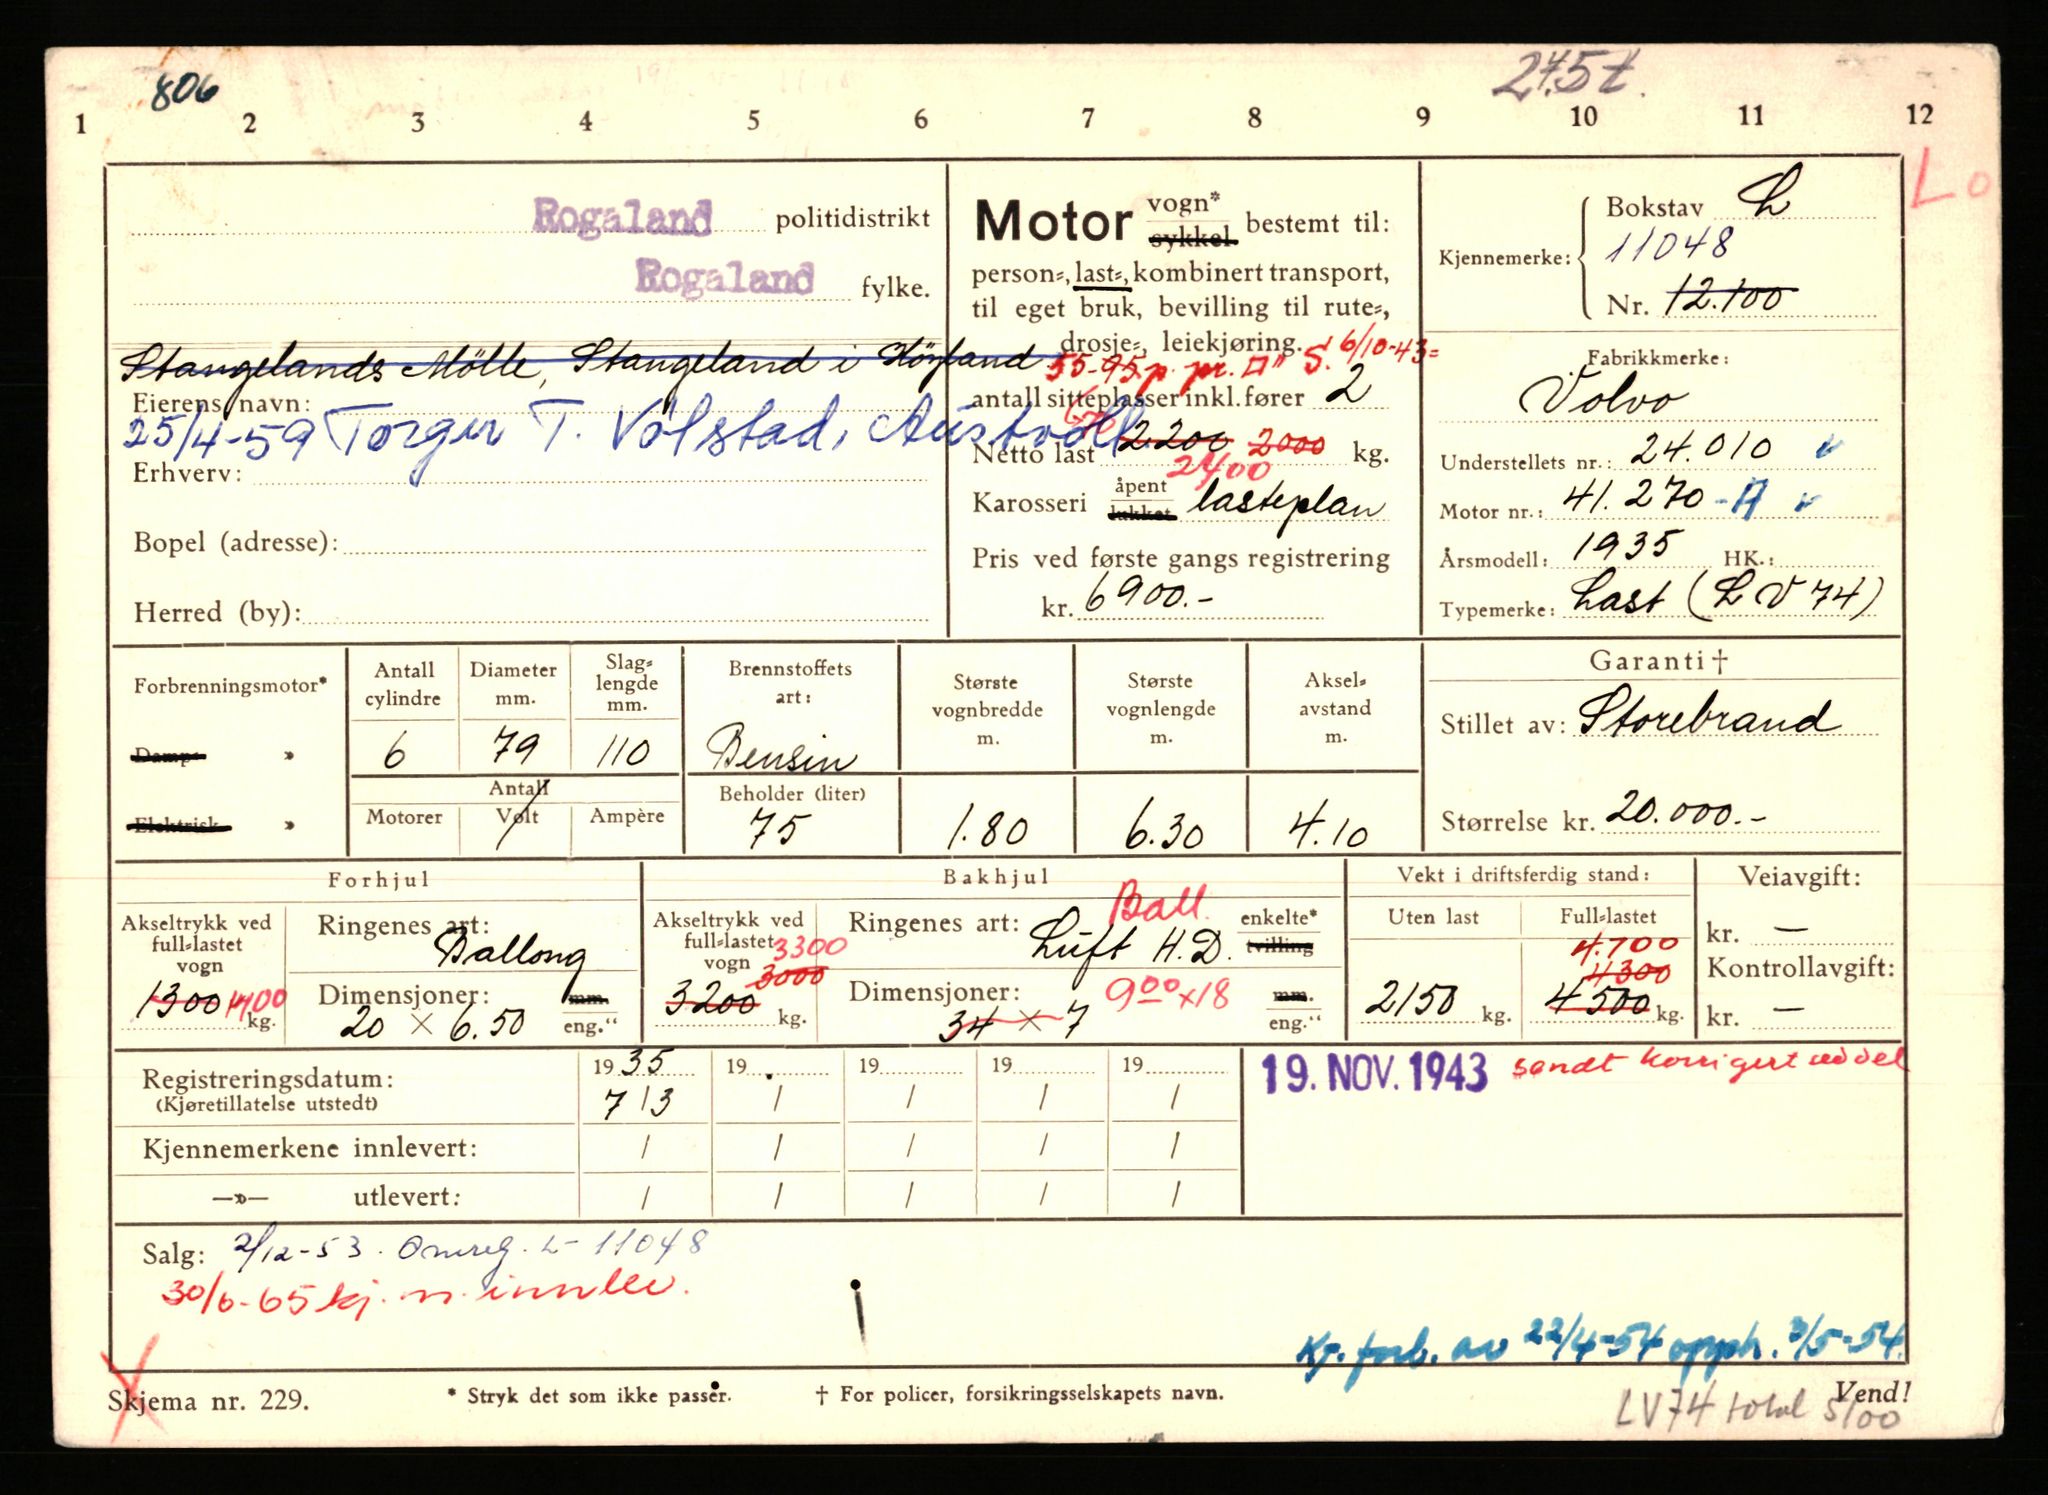 806
27.5t.
1 2 3 4 5 6 7 8 9 10 11 12
Lo
Rogaland politidistrikt
Rogaland fylke.
Stangelands Mölle, Stangeland i Höyland
Eierens navn:
25/4-59 Torger T. Volstad, Austvoll
Erhverv:
Bopel (adresse):
Herred (by):
Motor vogn* sykkel bestemt til:
person-, last-, kombinert transport,
til eget bruk, bevilling til rute-,
drosje-, leiekjøring.
55-95 p. pr. S. 6/10-43
antall sitteplasser inkl. fører 2
Netto last 2200 2000 kg.
2400
Karosseri åpent lukket lasteplan
Pris ved første gangs registrering
kr. 6900.-
Kjennemerke: Bokstav L
11048
Nr. 12.100
Fabrikkmerke:
Volvo
Understellets nr.: 24.010
Motor nr.: 41.270-A
Årsmodell: 1935 HK.:
Typemerke: Last (LV 74)
Forbrenningsmotor*
Damp- »
Elektrisk »
Antall cylindre
6
Diameter mm.
79
Slaglengde mm.
110
Antall
Motorer Volt Ampère
Brennstoffets art:
Bensin
Beholder (liter)
75
Største vognbredde m.
1.80
Største vognlengde m.
6.30
Akselavstand m.
4.10
Garanti †
Stillet av: Storebrand
Størrelse kr. 20.000.-
Forhjul
Akseltrykk ved full-lastet vogn
1300 1400 kg.
Ringenes art:
Ballong
Dimensjoner: mm.
20 × 6.50 eng."
Bakhjul
Akseltrykk ved full-lastet vogn
3300
3000
3200 kg.
Ringenes art: Ball. enkelte*
Luft H.D. tvilling
Dimensjoner: 900 x 18 mm.
34 × 7 eng."
Vekt i driftsferdig stand:
Uten last
2150 kg.
Full-lastet
4.700
4300
4500 kg.
Veiavgift:
kr. —
Kontrollavgift:
kr. —
Registreringsdatum: 19 35 19 19 19 19
(Kjøretillatelse utstedt) 7/3 / / / /
Kjennemerkene innlevert: / / / / /
—»— utlevert: / / / / /
19. NOV. 1943 sendt korrigert veddel
Salg: 2/12-53. Omreg. L-11048
30/6-65 kj. m. innlev.
Kj. forb. av 22/4-54 opph. 3/5-54.
Skjema nr. 229.
* Stryk det som ikke passer.
† For policer, forsikringsselskapets navn.
Vend!
LV74 total 5100